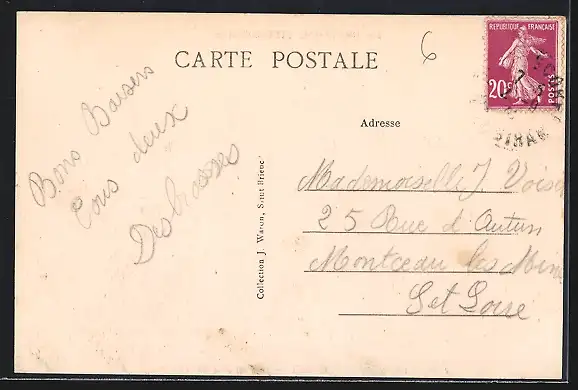 CARTE POSTALE
6
REPUBLIQUE FRANÇAISE
20c
POSTES
Adresse
Bons Baisers
Tous deux
Desbrosses
Collection J. Waron, Saint Brieuc
Mademoiselle J. Voisin
25 Rue d'Autun
Montceau les Mines
S et Loire